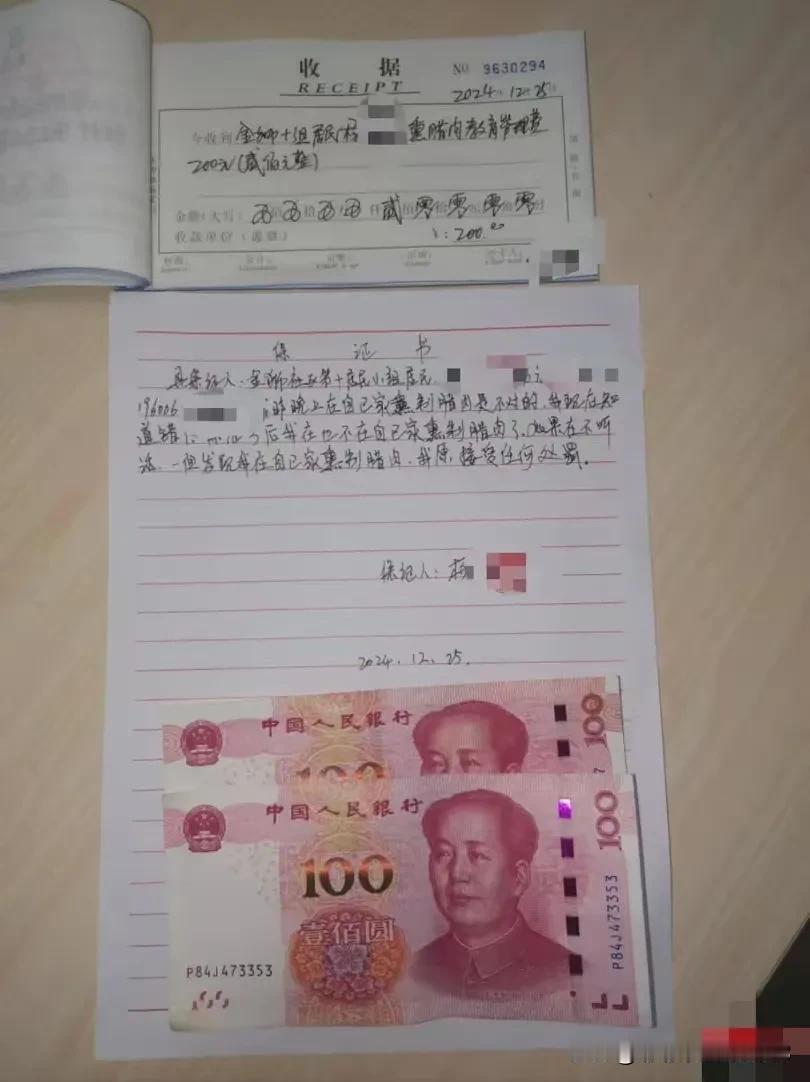 收 据
RECEIPT
NO 9630294
2024年12月25日
今收到 金狮十组居民杨 熏腊肉教育管理费
200元(贰佰元整)
金额(大写) 仟 贰 佰 零 拾 零 元 零 角 零 分
收款单位(盖章)
¥:200.00
保 证 书
具保证人:金狮社区第十居民小组居民
196006
昨晚上在自己家熏制腊肉是不对的,我现在知
道错
后我在也不在自己家熏制腊肉了,如果在不听
话,一但发现我在自己家熏制腊肉,我原接受任何处罚。
保证人:杨
2024.12.25.
中国人民银行
100
100
中国人民银行
100
100
壹佰圆
P84J473353
P84J473353